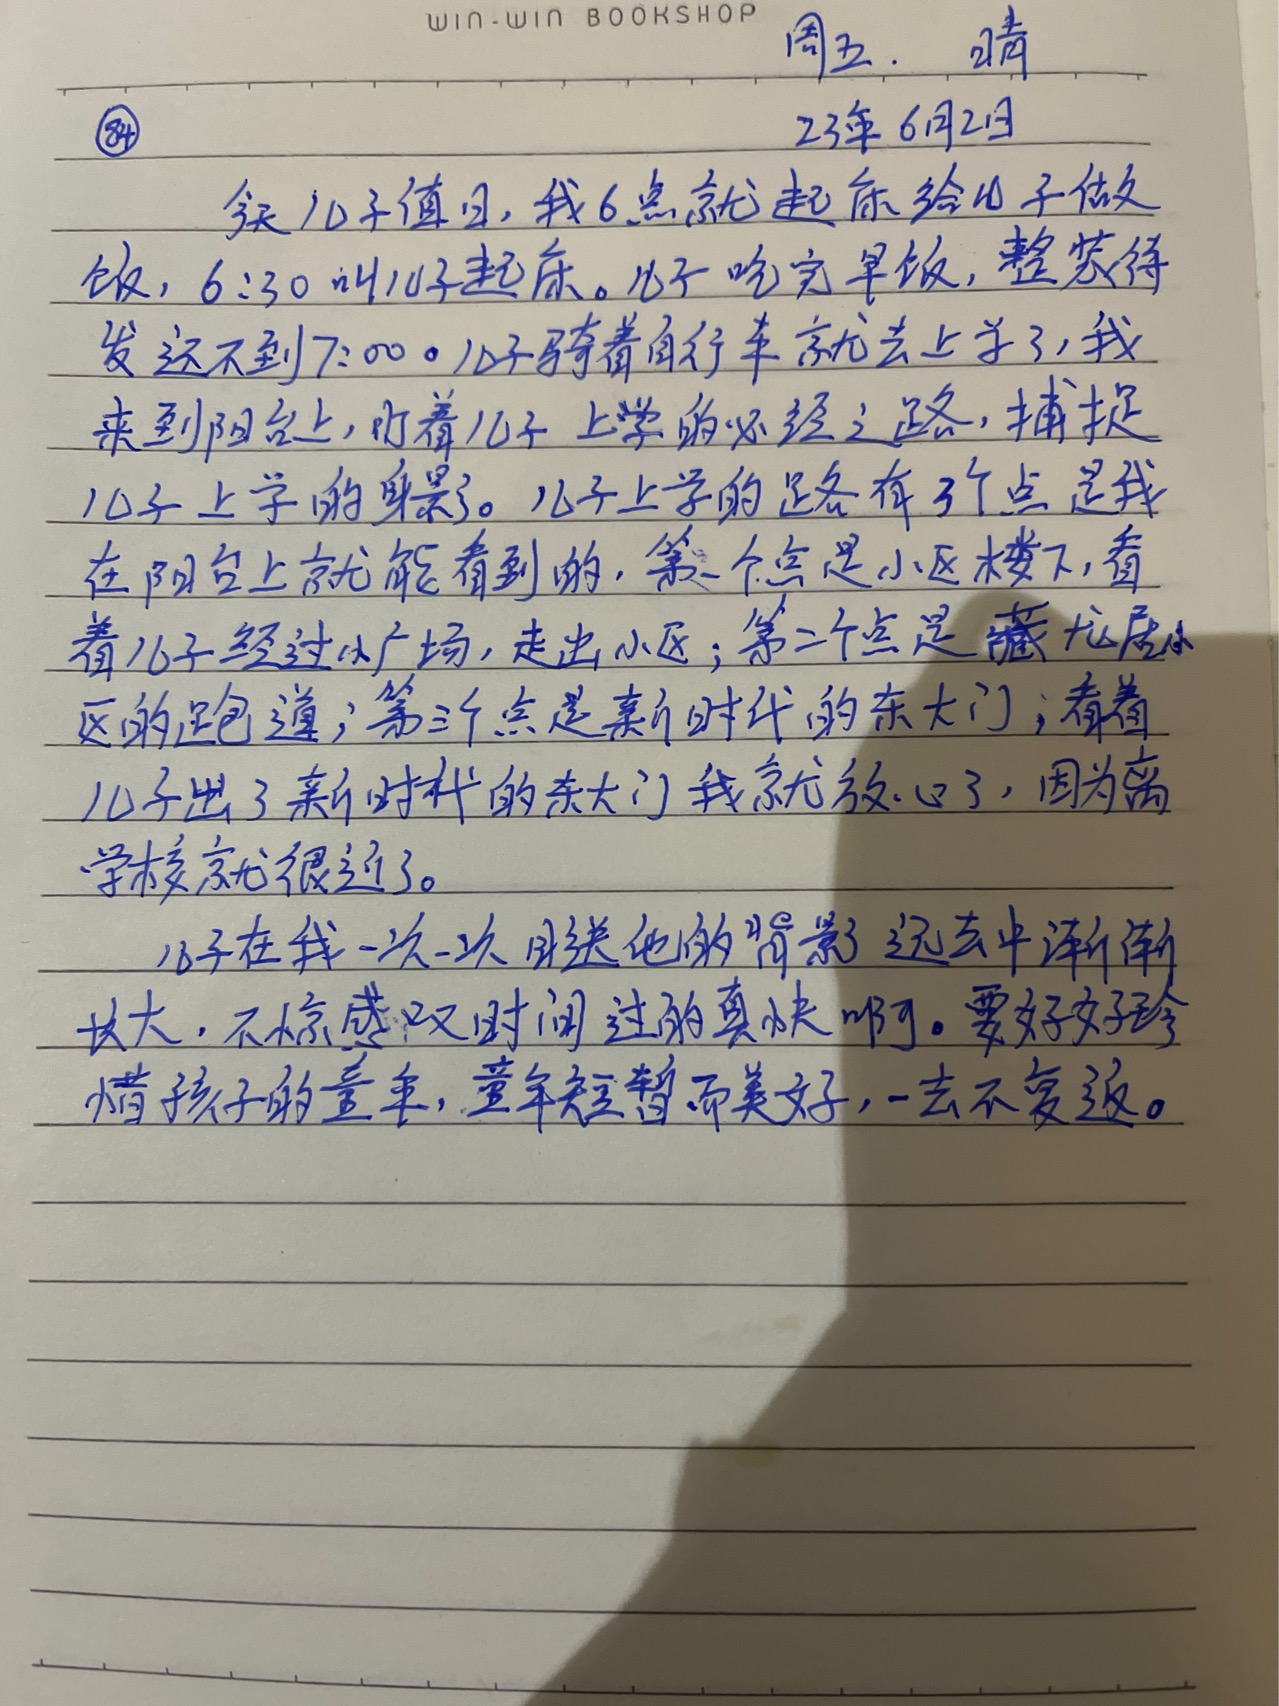 WIN-WIN BOOKSHOP
周五. 晴
84 23年6月2日
今天儿子值日,我6点就起床给儿子做
饭,6:30叫儿子起床。儿子吃完早饭,整装待
发还不到7:00。儿子骑着自行车就去上学了,我
来到阳台上,盯着儿子上学的必经之路,捕捉
儿子上学的身影。儿子上学的路有3个点是我
在阳台上就能看到的,第一个点是小区楼下,看
着儿子经过小广场,走出小区;第二个点是藏龙居小
区的跑道;第三个点是新时代的东大门;看着
儿子出了新时代的东大门我就放心了,因为离
学校就很近了。
儿子在我一次一次目送他的背影远去中渐渐
长大,不惊感叹时间过的真快啊。要好好珍
惜孩子的童年,童年短暂而美好,一去不复返。